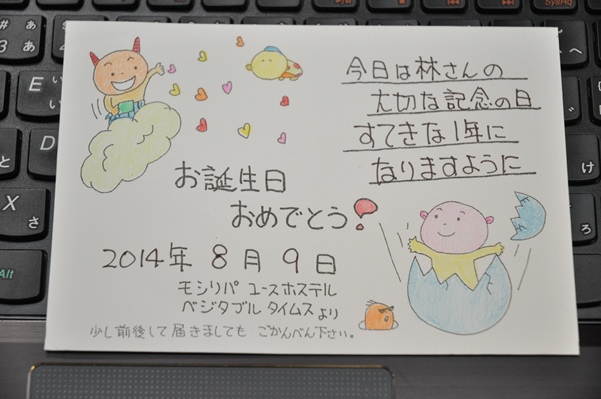 今日は林さんの
大切な記念の日
すてきな1年に
なりますように
お誕生日
おめでとう!
2014年 8月 9日
モシリパ ユースホステル
ベジタブル タイムスより
少し前後して届きましても ごかんべん下さい。
#
3 あ
E い
D
X さ
Alt
SysRq
へ
ろ